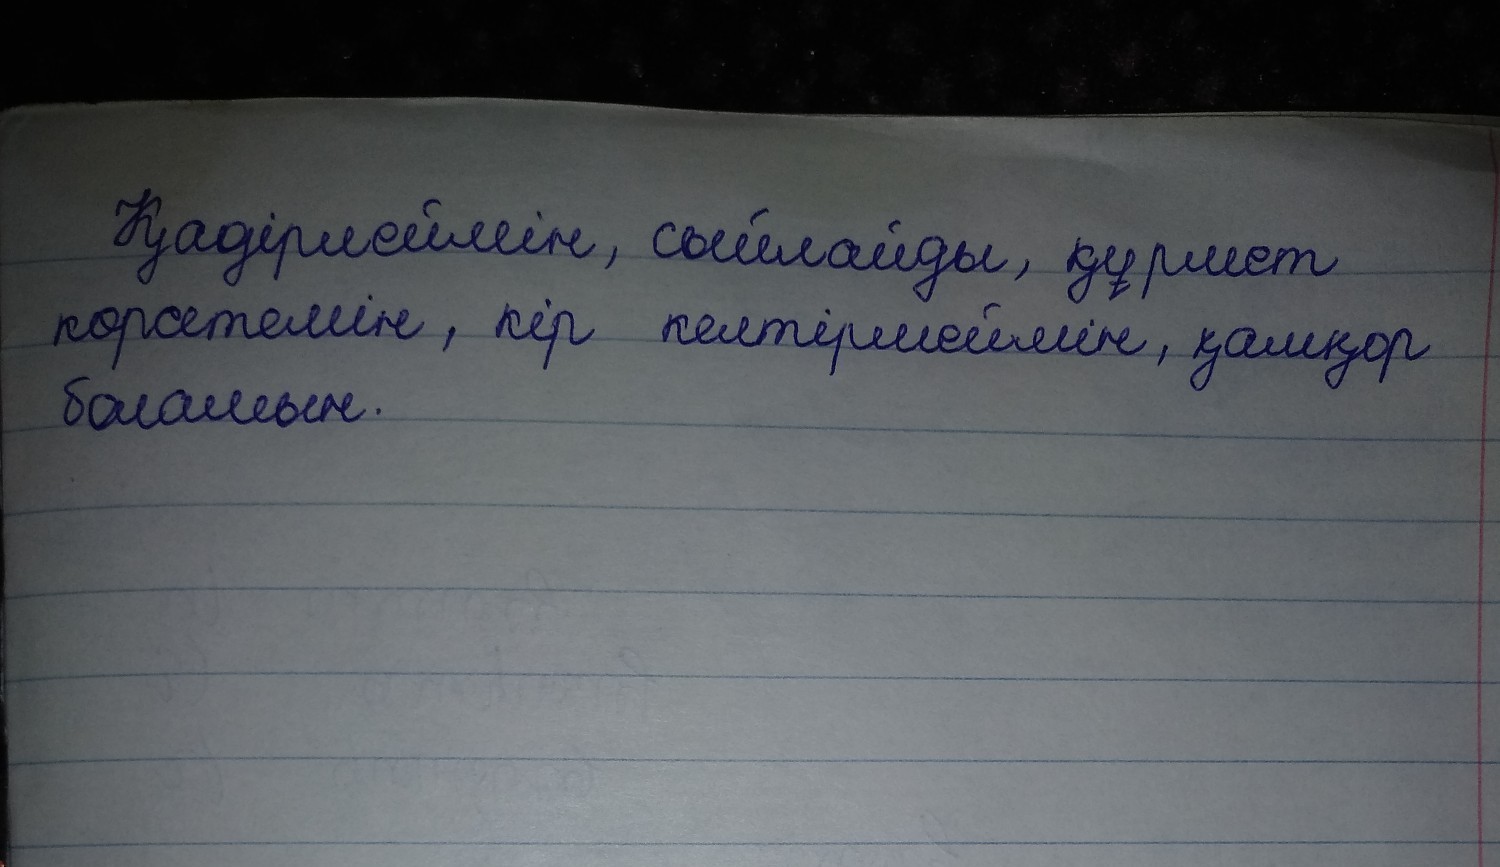 Қадірлеймін, сыйлайды, құрмет
көрсетемін, кір келтірмеймін, қамқор
боламын.